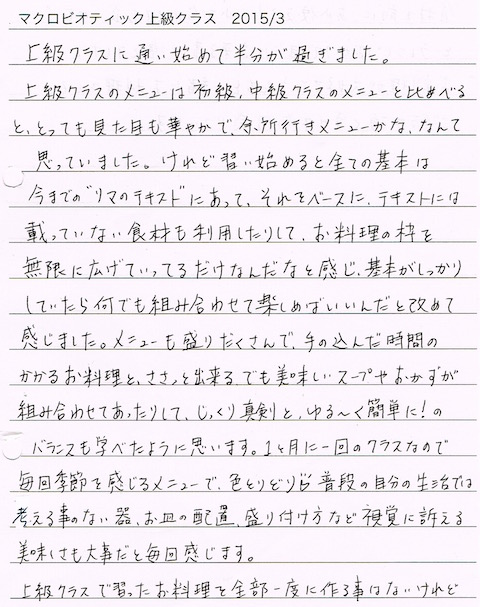 マクロビオティック上級クラス 2015/3
上級クラスに通い始めて半分が過ぎました。
上級クラスのメニューは初級、中級クラスのメニューと比べる
と、とっても見た目も華やかで、余所行きメニューかな、なんて
思っていました。けれど習い始めると全ての基本は
今までの"リマのテキスト"にあって、それをベースに、テキストには
載っていない食材も利用したりして、お料理の枠を
無限に広げていってるだけなんだなと感じ、基本がしっかり
していたら何でも組み合わせて楽しめばいいんだと改めて
感じました。メニューも盛りだくさんで、手の込んだ時間の
かかるお料理と、ささっと出来る、でも美味しいスープやおかずが
組み合わせてあったりして、じっくり真剣と、ゆる〜く簡単に!の
バランスも学べたように思います。1ヶ月に一回のクラスなので
毎回季節を感じるメニューで、色とりどり普段の自分の生活では
考える事のない器、お皿の配置、盛り付け方など視覚に訴える
美味しさも大事だと毎回感じます。
上級クラスで習ったお料理を全部一度に作る事はないけれど